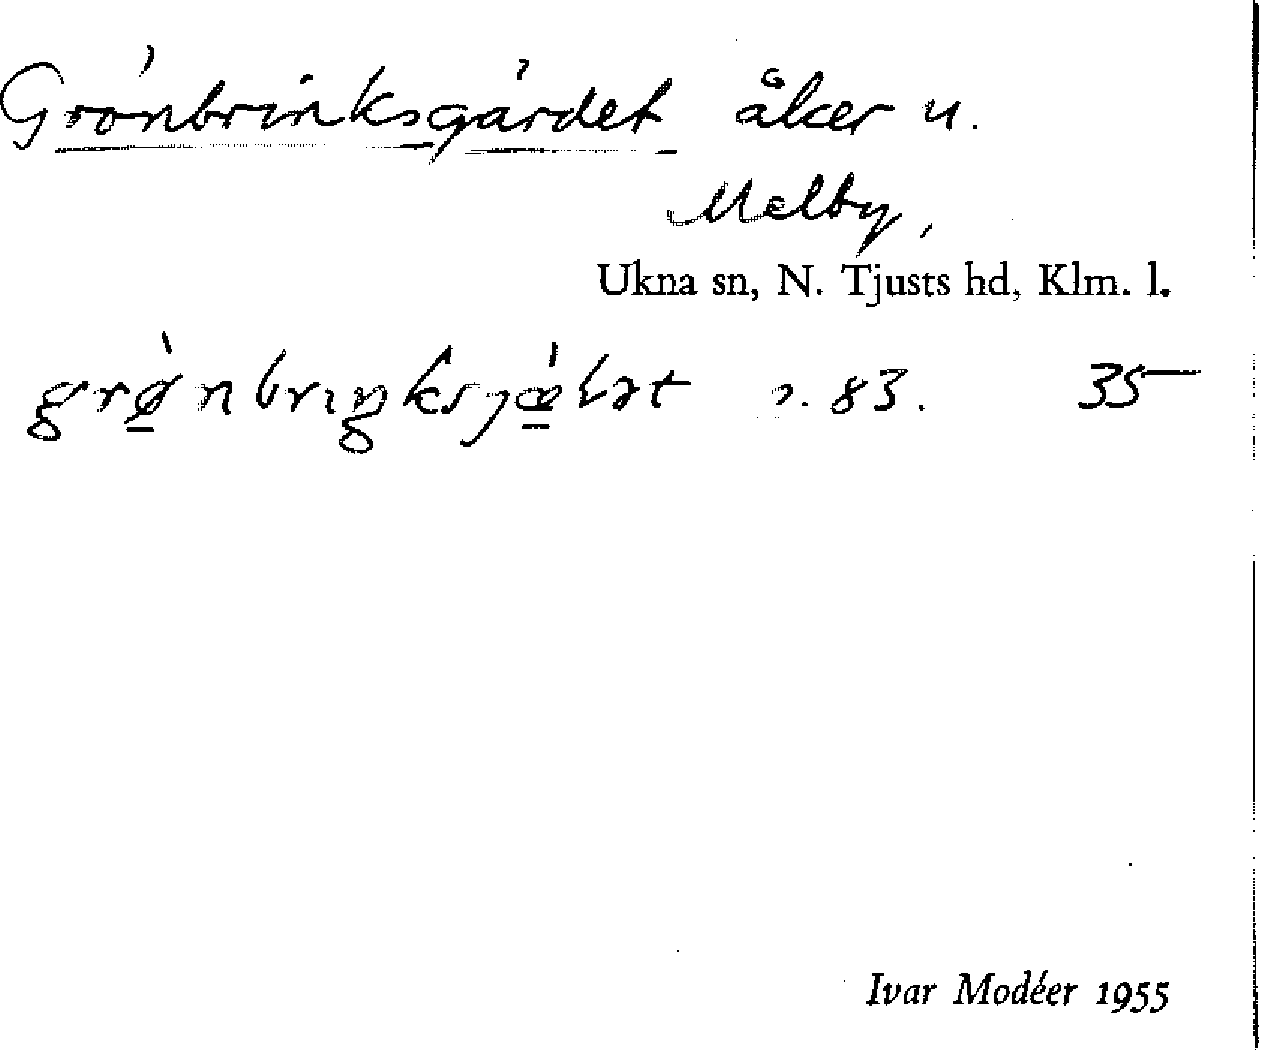 Grönbrinksgärdet åker u.
Melby,
Ukna sn, N. Tjusts hd, Klm. l.
grø̲̀nbrıŋksjæ̲̀ɫət s. 83. 35
Ivar Modéer 1955